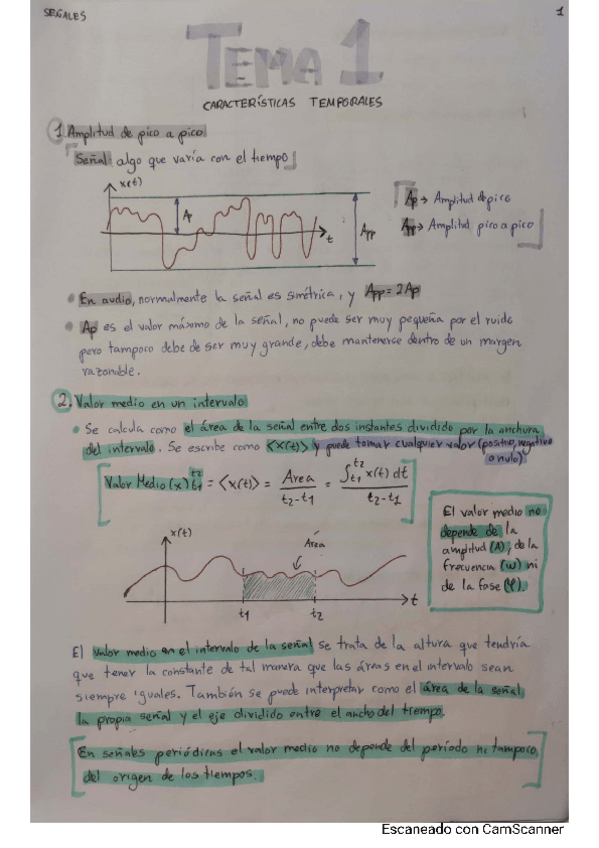 SEÑALES
1
TEMA 1
CARACTERÍSTICAS TEMPORALES
1. Amplitud de pico a pico
Señal: algo que varía con el tiempo
x(t)
Ap
t
App
Ap → Amplitud de pico
App → Amplitud pico a pico
• En audio, normalmente la señal es simétrica, y App = 2Ap
• Ap es el valor máximo de la señal, no puede ser muy pequeña por el ruido
pero tampoco debe de ser muy grande, debe mantenerse dentro de un margen
razonible.
2. Valor medio en un intervalo
• Se calcula como el área de la señal entre dos instantes dividido por la anchura
del intervalo. Se escribe como <x(t)> y puede tomar cualquier valor (positivo, negativo
o nulo).
Valor Medio (x) t2 t1 = <x(t)> = Area / t2 - t1 = ∫t1 t2 x(t) dt / t2 - t1
El valor medio no
depende de la
amplitud (A), de la
frecuencia (w) ni
de la fase (φ).
x(t)
Área
t1
t2
t
El valor medio en el intervalo de la señal se trata de la altura que tendría
que tener la constante de tal manera que las áreas en el intervalo sean
siempre iguales. También se puede interpretar como el área de la señal
la propia señal y el eje dividido entre el ancho del tiempo.
En señales periódicas el valor medio no depende del período ni tampoco
del origen de los tiempos.
Escaneado con CamScanner